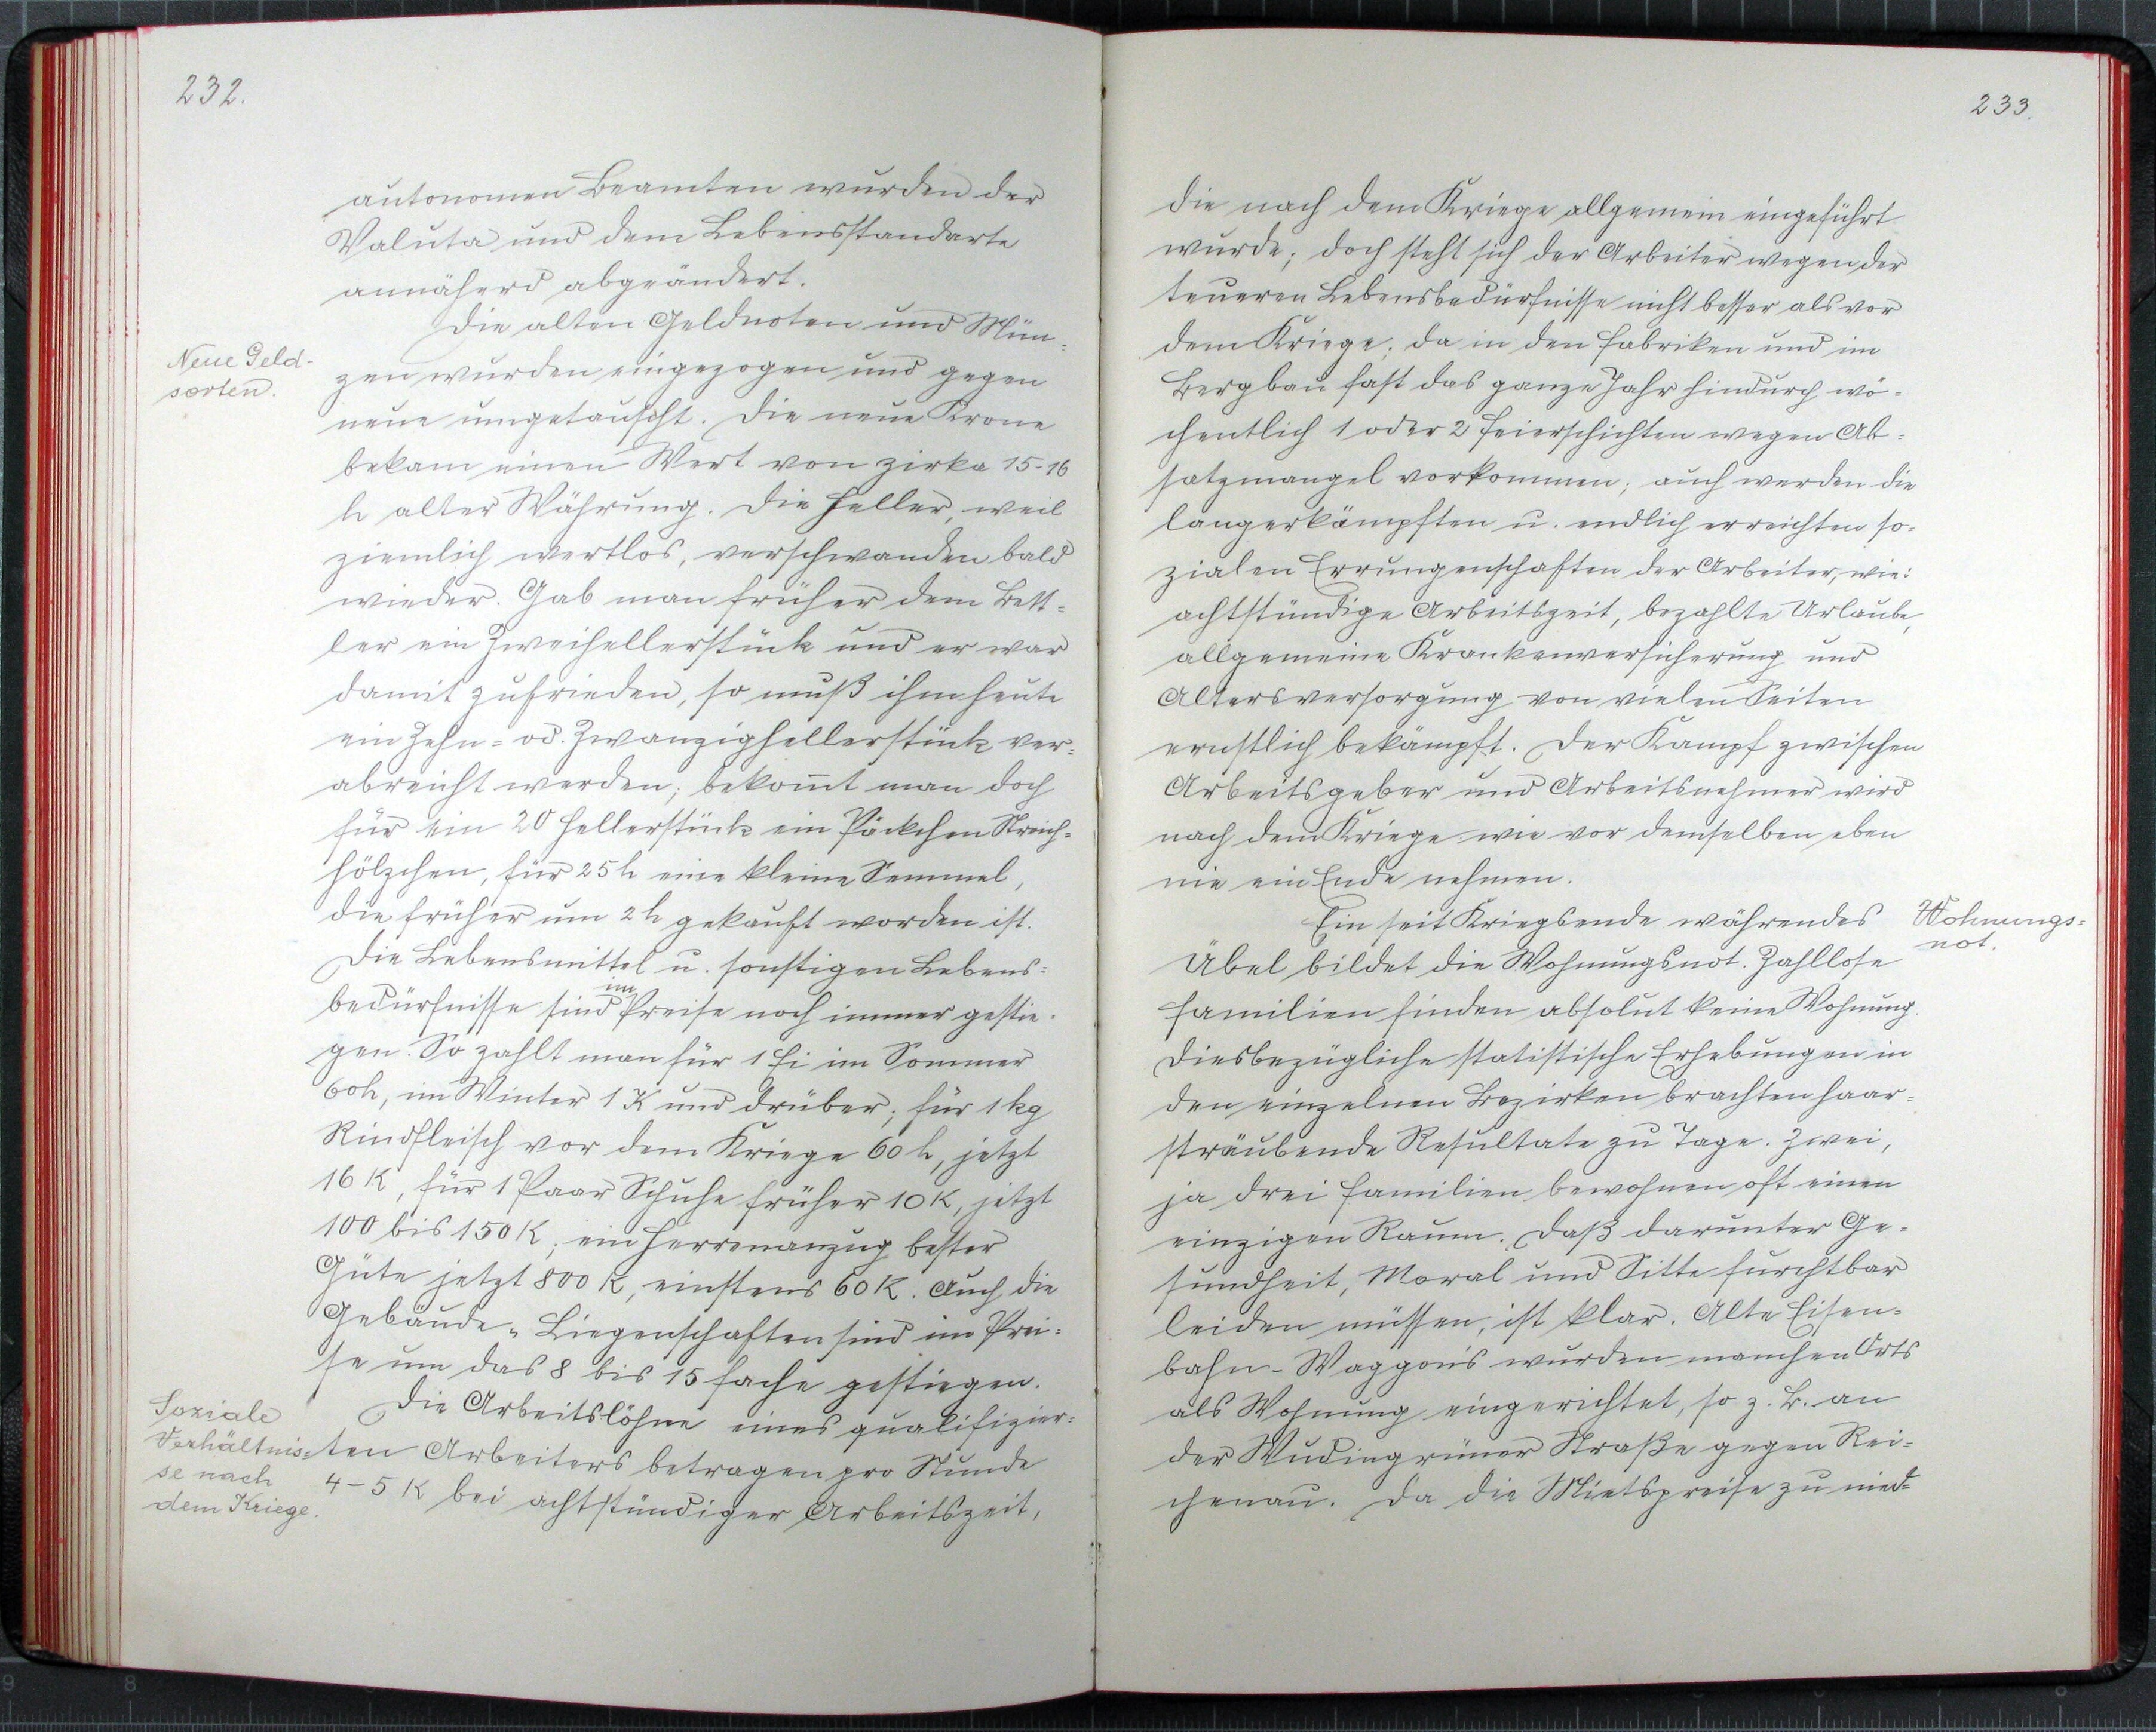 232.
autonomen Beamten wurden der
Valuta und dem Lebensstandarte
annäherd abgeändert.
Die alten Geldnoten und Mün-
Neue Geld-
sorten.
zen wurden eingezogen und gegen
neue umgetauscht. Die neue Krone
bekam einen Wert von zirka 15-16
h alter Währung. Die Heller, weil
ziemlich wertlos, verschwanden bald
wieder. Gab man früher dem Bett-
ler ein Zweihellerstück und er war
damit zufrieden, so muß ihm heute
ein Zehn- od. Zwanzighellerstück ver-
abreicht werden; bekomt man doch
für ein 20 Hellerstück ein Päckchen Streich-
hölzchen, für 25 h eine kleine Semmel,
die früher um 2 h gekauft worden ist.
Die Lebensmittel u. sonstigen Lebens-
bedürfnisse sind im Preise noch immer gestie-
gen. So zahlt man für 1 Ei im Sommer
60h, im Winter 1 K und drüber; für 1 kg
Rindfleisch vor dem Kriege 60 h, jetzt
16 K, für 1 Paar Schuhe früher 10 K, jetzt
100 bis 150 K; ein Herrenanzug bester
Güte jetzt 800 K, einstens 60 K. Auch die
Gebäude- Liegenschaften sind im Prei-
se um das 8 bis 15 fache gestiegen.
Die Arbeitslöhne eines qualifizier-
Soziale
Verhältnis-
se nach
dem Kriege.
ten Arbeiters betragen pro Stunde
4-5 K bei achtstündiger Arbeitszeit,
233.
die nach dem Kriege allgemein eingeführt
wurde; doch steht sich der Arbeiter wegen der
teueren Lebensbedürfnisse nicht besser als vor
dem Kriege; da in den Fabriken und im
Bergbau fast das ganze Jahr hindurch wö-
chentlich 1 oder 2 Feierschichten wegen Ab-
satzmangel vorkommen; auch werden die
langerkämpften u. endlich erreichten so-
zialen Errungenschaften der Arbeiter, wie:
achtstündige Arbeitszeit, bezahlte Urlaube,
allgemeine Krankenversicherung und
Altersversorgung von vielen Seiten
ernstlich bekämpft. Der Kampf zwischen
Arbeitsgeber und Arbeitsnehmer wird
nach dem Kriege wie vor demselben eben
nie ein Ende nehmen.
Ein seit Kriegsende währendes
Wohnungs-
not.
Übel bildet die Wohnungsnot. Zahllose
Familien finden absolut keine Wohnung.
Diesbezügliche statistische Erhebungen in
den einzelnen Bezirken brachten haar-
sträubende Resultate zu Tage. Zwei,
ja drei Familien bewohnen oft einen
einzigen Raum. Daß darunter Ge-
sundheit, Moral und Sitte furchtbar
leiden müssen, ist klar. Alte Eisen-
bahn-Waggons wurden manchen Orts
als Wohnung eingerichtet, so z. B. an
der Wudingrüner Straße gegen Rei-
chenau. Da die Mietspreise zu nied-